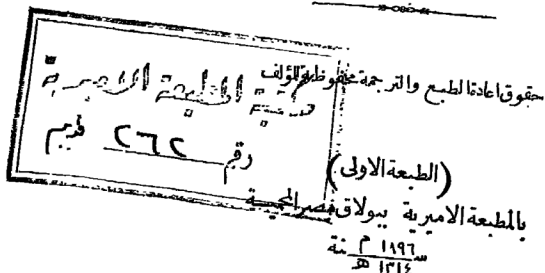 حقوق اعادة الطبع والترجمة محفوظة للمؤلف
المطبعة الاميرية
رقم ٢٦٢ قديم
(الطبعة الاولى)
بالمطبعة الاميرية ببولاق مصر المحمية
سنة ١٨٩٦ م
١٣١٤ هـ